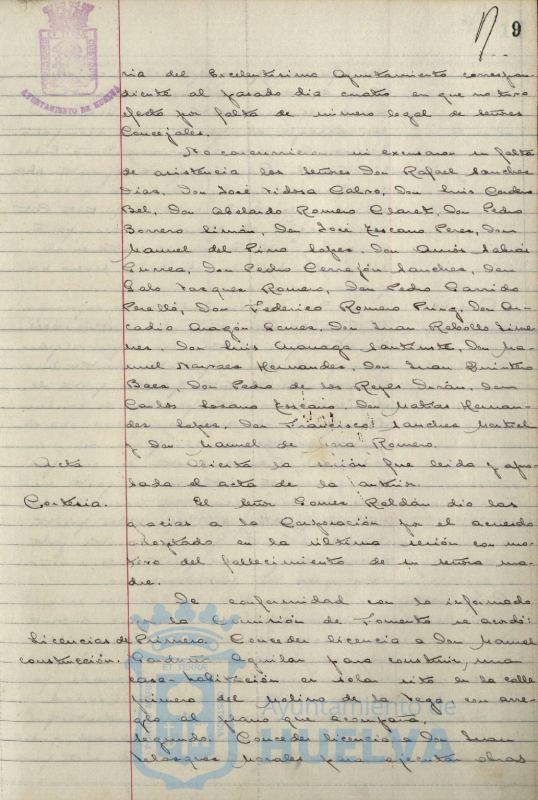 9
AYUNTAMIENTO DE HUELVA
ria del Excelentísimo Ayuntamiento correspon-
diente al pasado día cuatro en que no tuvo
efecto por falta de número legal de señores
Concejales.
No concurrieron ni excusaron su falta
de asistencia los señores Don Rafael Sanchez
Dias, Don José Tidosa Calvo, Don Luis Cordero
Bel, Don Abelardo Romero Claret, Don Pedro
Borrero Limón, Don José Lescano Peres, Don
Manuel del Pino Lopes, Don Amós Sabrás
Gurrea, Don Pedro Cerrejón Sanches, Don
Galo Vasques Romero, Don Pedro Garrido
Perelló, Don Federico Romero Don Ar-
cadio Aragón Gomes, Don Juan Rebollo Jime-
nes, Don Luis Don Ma-
nuel Narvaes Hernandes, Don Juan Quintero
Baea, Don Pedro de los Reyes Don
Carlos Losano Don Matías Hernan-
des Lopes, Don Francisco Sanches
y Don Manuel de Romero.
Acta Abierta la sesión fue leida y apro-
bada el acta de la anterior.
Cortesia. El señor Gomes Roldán dio las
gracias a la Corporación por el acuerdo
adoptado en la última sesión con mo-
tivo del fallecimiento de su señora ma-
dre.
De conformidad con lo informado
por la Comisión de Fomento se acordó:
Licencias de Primero. Conceder licencia a Don Manuel
construcción. Aguilar para construir, una
casa-habitación en solar sito en la calle
número del Molino de la Vega con arre-
glo al plano que acompaña.
Segundo. Conceder licencia a Don Juan
Velasques Morales para ejecutar obras
Ayuntamiento de
HUELVA